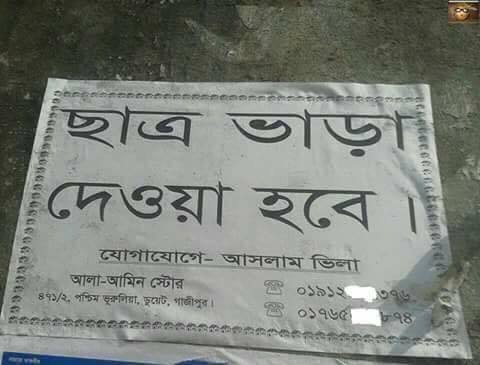 ছাত্র ভাড়া
দেওয়া হবে ।
যোগাযোগে- আসলাম ভিলা
আলা-আমিন স্টোর
৪৭১/২, পশ্চিম ভূরুলিয়া, ডুয়েট, গাজীপুর।
☏ ০১৯১২ ৩৭৬
☏ ০১৭৬৫ ৮৭৪